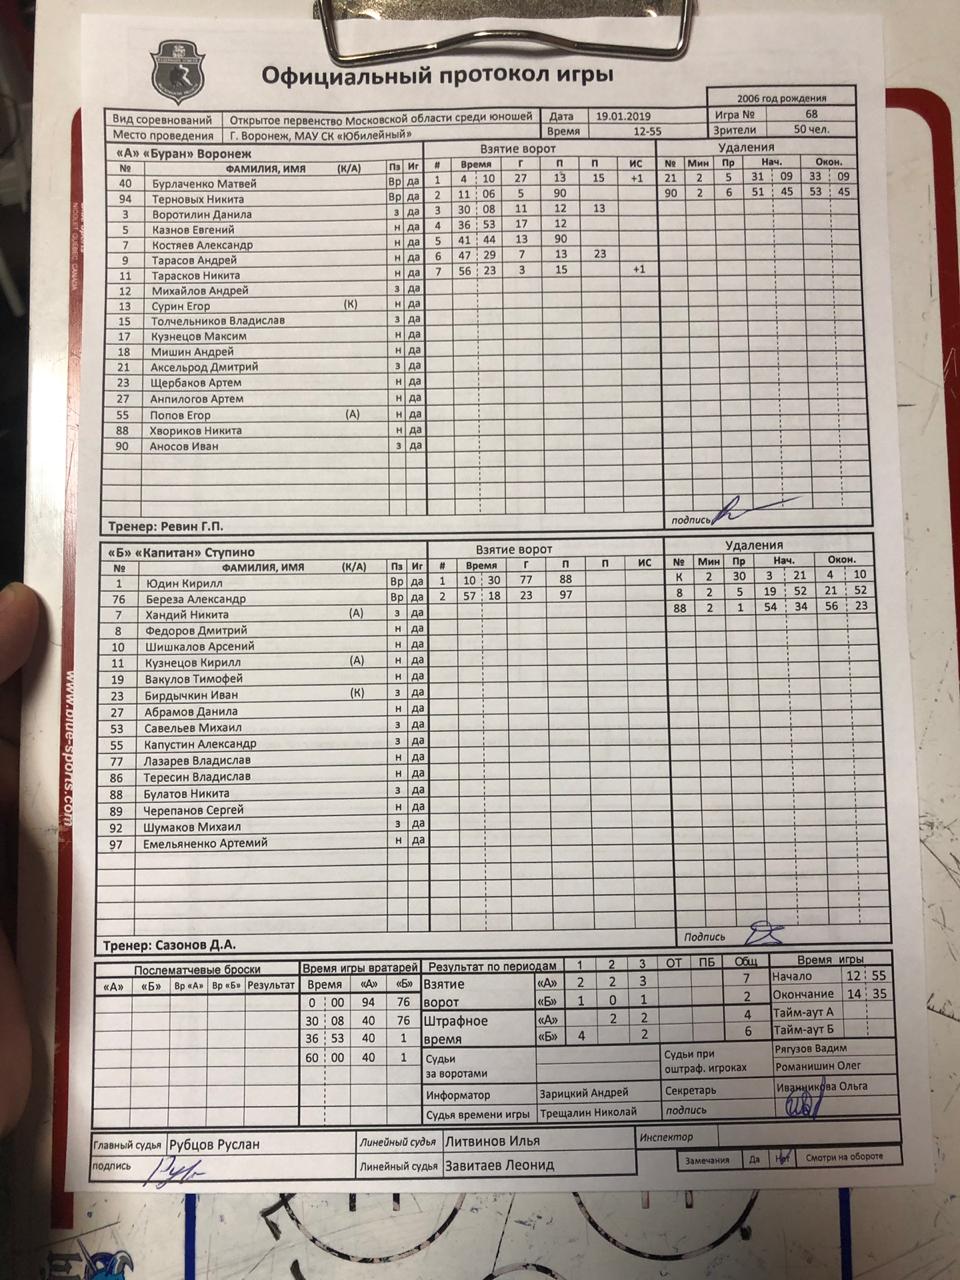 Официальный протокол игры
2006 год рождения
Вид соревнований Открытое первенство Московской области среди юношей Дата 19.01.2019 Игра № 68
Место проведения Г. Воронеж, МАУ СК «Юбилейный» Время 12-55 Зрители 50 чел.
«А» «Буран» Воронеж Взятие ворот Удаления
№ ФАМИЛИЯ, ИМЯ (К/А) Пз Иг # Время Г П П ИС № Мин Пр Нач. Окон.
40 Бурлаченко Матвей Вр да 1 4 10 27 13 15 +1 21 2 5 31 09 33 09
94 Терновых Никита Вр да 2 11 06 5 90 90 2 6 51 45 53 45
3 Воротилин Данила з да 3 30 08 11 12 13
5 Казнов Евгений н да 4 36 53 17 12
7 Костяев Александр н да 5 41 44 13 90
9 Тарасов Андрей н да 6 47 29 7 13 23
11 Тарасков Никита н да 7 56 23 3 15 +1
12 Михайлов Андрей з да
13 Сурин Егор (К) н да
15 Толчельников Владислав з да
17 Кузнецов Максим н да
18 Мишин Андрей н да
21 Аксельрод Дмитрий з да
23 Щербаков Артем н да
27 Анпилогов Артем н да
55 Попов Егор (А) н да
88 Хвориков Никита н да
90 Аносов Иван з да
Тренер: Ревин Г.П. подпись
«Б» «Капитан» Ступино Взятие ворот Удаления
№ ФАМИЛИЯ, ИМЯ (К/А) Пз Иг # Время Г П П ИС № Мин Пр Нач. Окон.
1 Юдин Кирилл Вр да 1 10 30 77 88 К 2 30 3 21 4 10
76 Береза Александр Вр да 2 57 18 23 97 8 2 5 19 52 21 52
7 Хандий Никита (А) з да 88 2 1 54 34 56 23
8 Федоров Дмитрий н да
10 Шишкалов Арсений н да
11 Кузнецов Кирилл (А) н да
19 Вакулов Тимофей н да
23 Бирдычкин Иван (К) з да
27 Абрамов Данила н да
53 Савельев Михаил з да
55 Капустин Александр з да
77 Лазарев Владислав н да
86 Тересин Владислав н да
88 Булатов Никита з да
89 Черепанов Сергей н да
92 Шумаков Михаил з да
97 Емельяненко Артемий н да
Тренер: Сазонов Д.А. Подпись
Послематчевые броски Время игры вратарей Результат по периодам 1 2 3 ОТ ПБ Общ Время игры
«А» «Б» Вр «А» Вр «Б» Результат Время «А» «Б» Взятие ворот «А» 2 2 3 7 Начало 12 55
0 00 94 76 «Б» 1 0 1 2 Окончание 14 35
30 08 40 76 Штрафное время «А» 2 2 4 Тайм-аут А
36 53 40 1 «Б» 4 2 6 Тайм-аут Б
60 00 40 1 Судьи за воротами Судьи при оштраф. игроках Рягузов Вадим
Романишин Олег
Информатор Зарицкий Андрей Секретарь Иванникова Ольга
Судья времени игры Трещалин Николай подпись
Главный судья Рубцов Руслан Линейный судья Литвинов Илья Инспектор
подпись Линейный судья Завитаев Леонид Замечания Да Нет Смотри на обороте
www.blue-sports.com